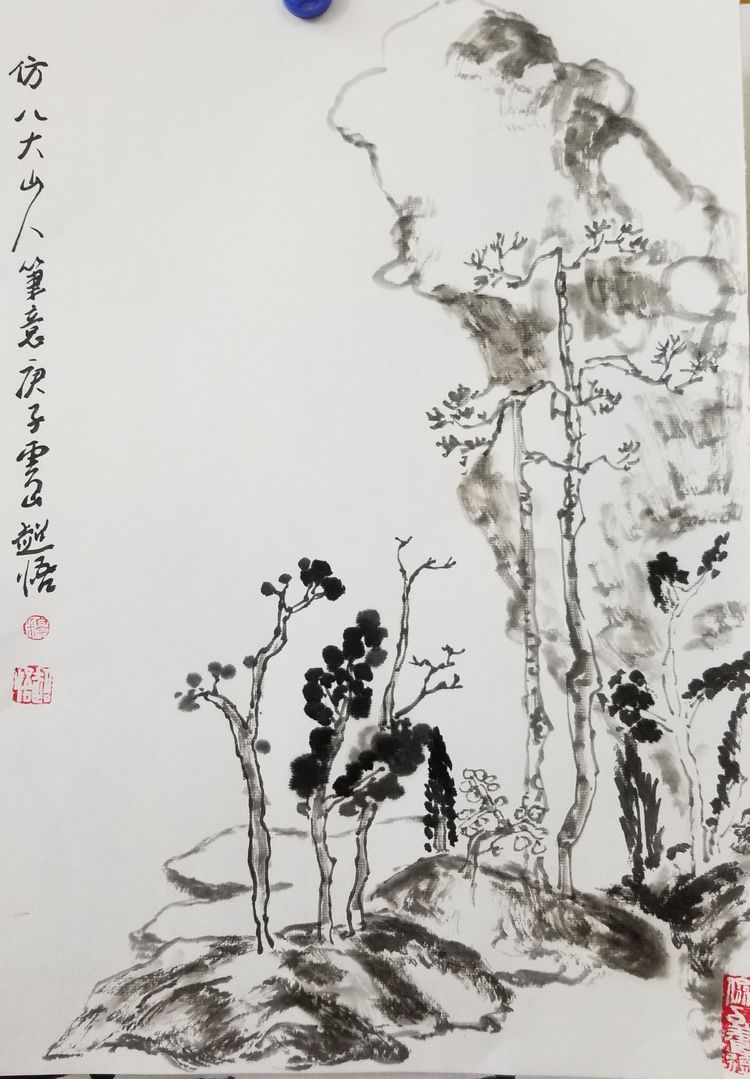 仿八大山人筆意庚子雲山超悟